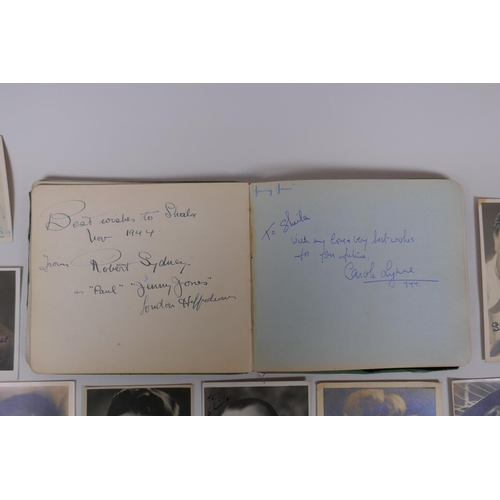 Best wishes to Sheila
Nov 1944
From Robert Sydney
as "Paul" "Jenny Jones"
London Hippodrome
Jenny Jones
To Sheila
With my love & very best wishes
for the future
Carole Lynne
1944